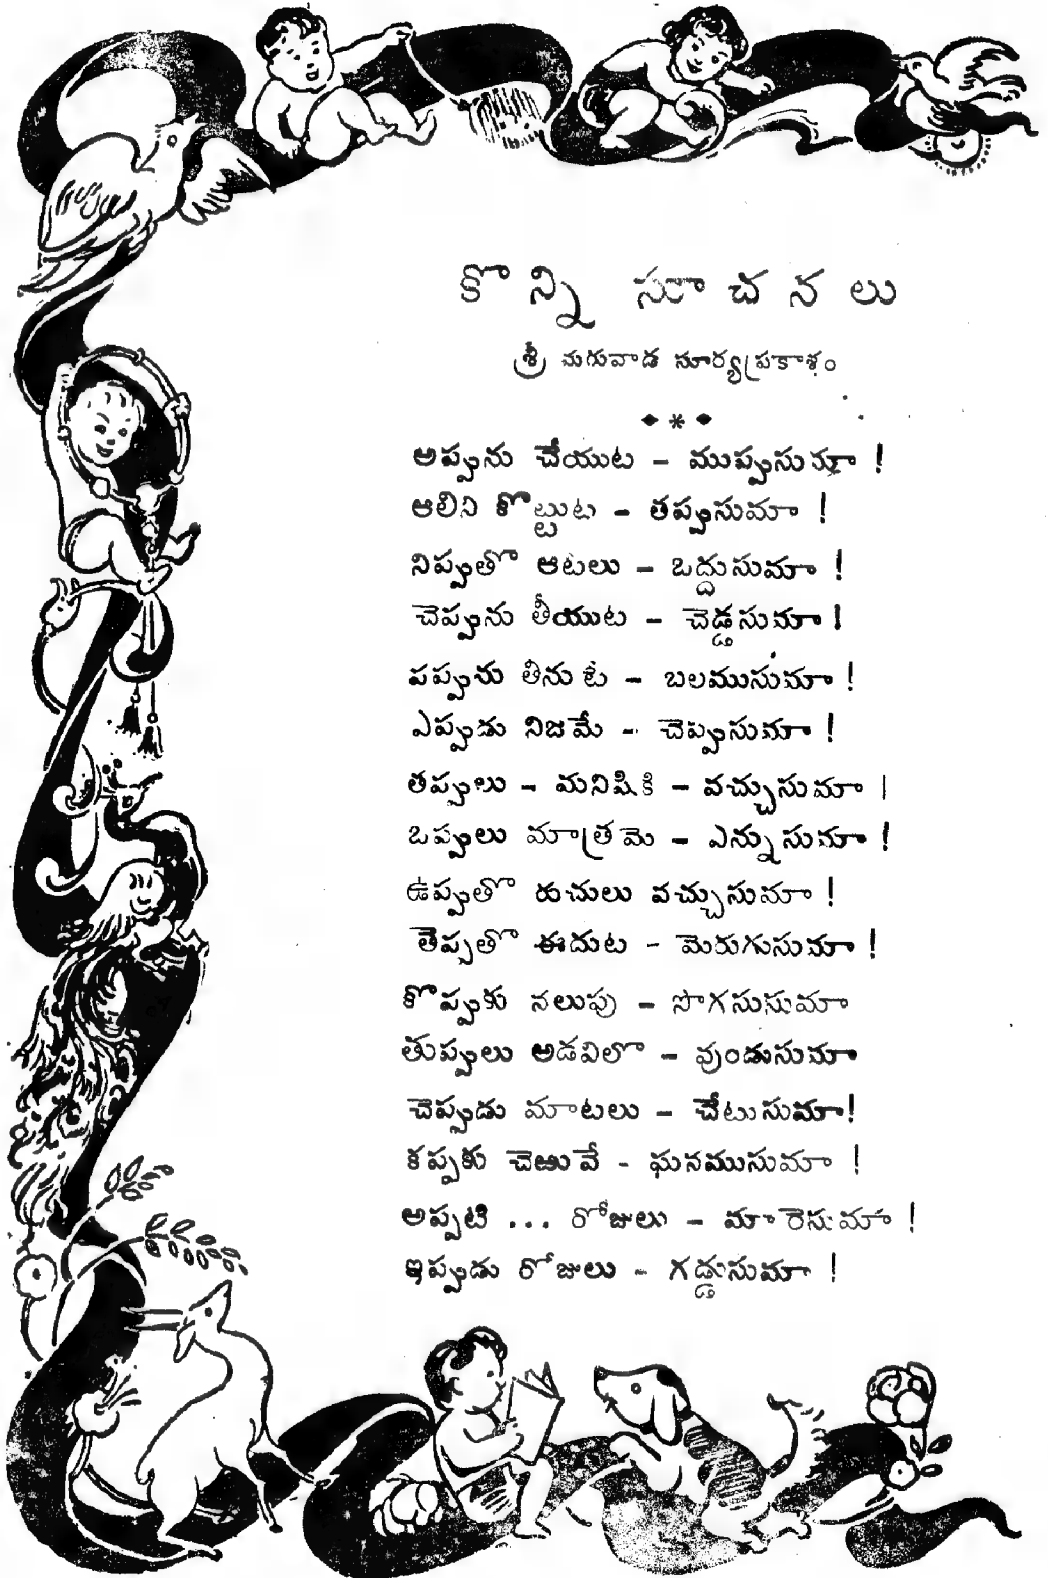 కొన్ని సూచనలు
శ్రీ చుగువాడ సూర్యప్రకాశం
అప్పును చేయుట - ముప్పుసుమా !
ఆలిని కొట్టుట - తప్పుసుమా !
నిప్పుతొ ఆటలు - ఒద్దుసుమా !
చెప్పును తీయుట - చెడ్డసుమా !
పప్పును తినుటే - బలముసుమా !
ఎప్పుడు నిజమే - చెప్పుసుమా !
తప్పులు - మనిషికి - వచ్చుసుమా !
ఒప్పులు మాత్రమె - ఎన్నుసుమా !
ఉప్పుతొ రుచులు వచ్చుసుమా !
తెప్పతొ ఈదుట - మెరుగుసుమా !
కొప్పుకు నలుపు - సొగసుసుమా
తుప్పలు అడవిలొ - వుండుసుమా
చెప్పుడు మాటలు - చేటుసుమా!
కప్పకు చెఱువే - ఘనముసుమా !
అప్పటి ... రోజులు - మారెసుమా !
ఇప్పుడు రోజులు - గడ్డుసుమా !